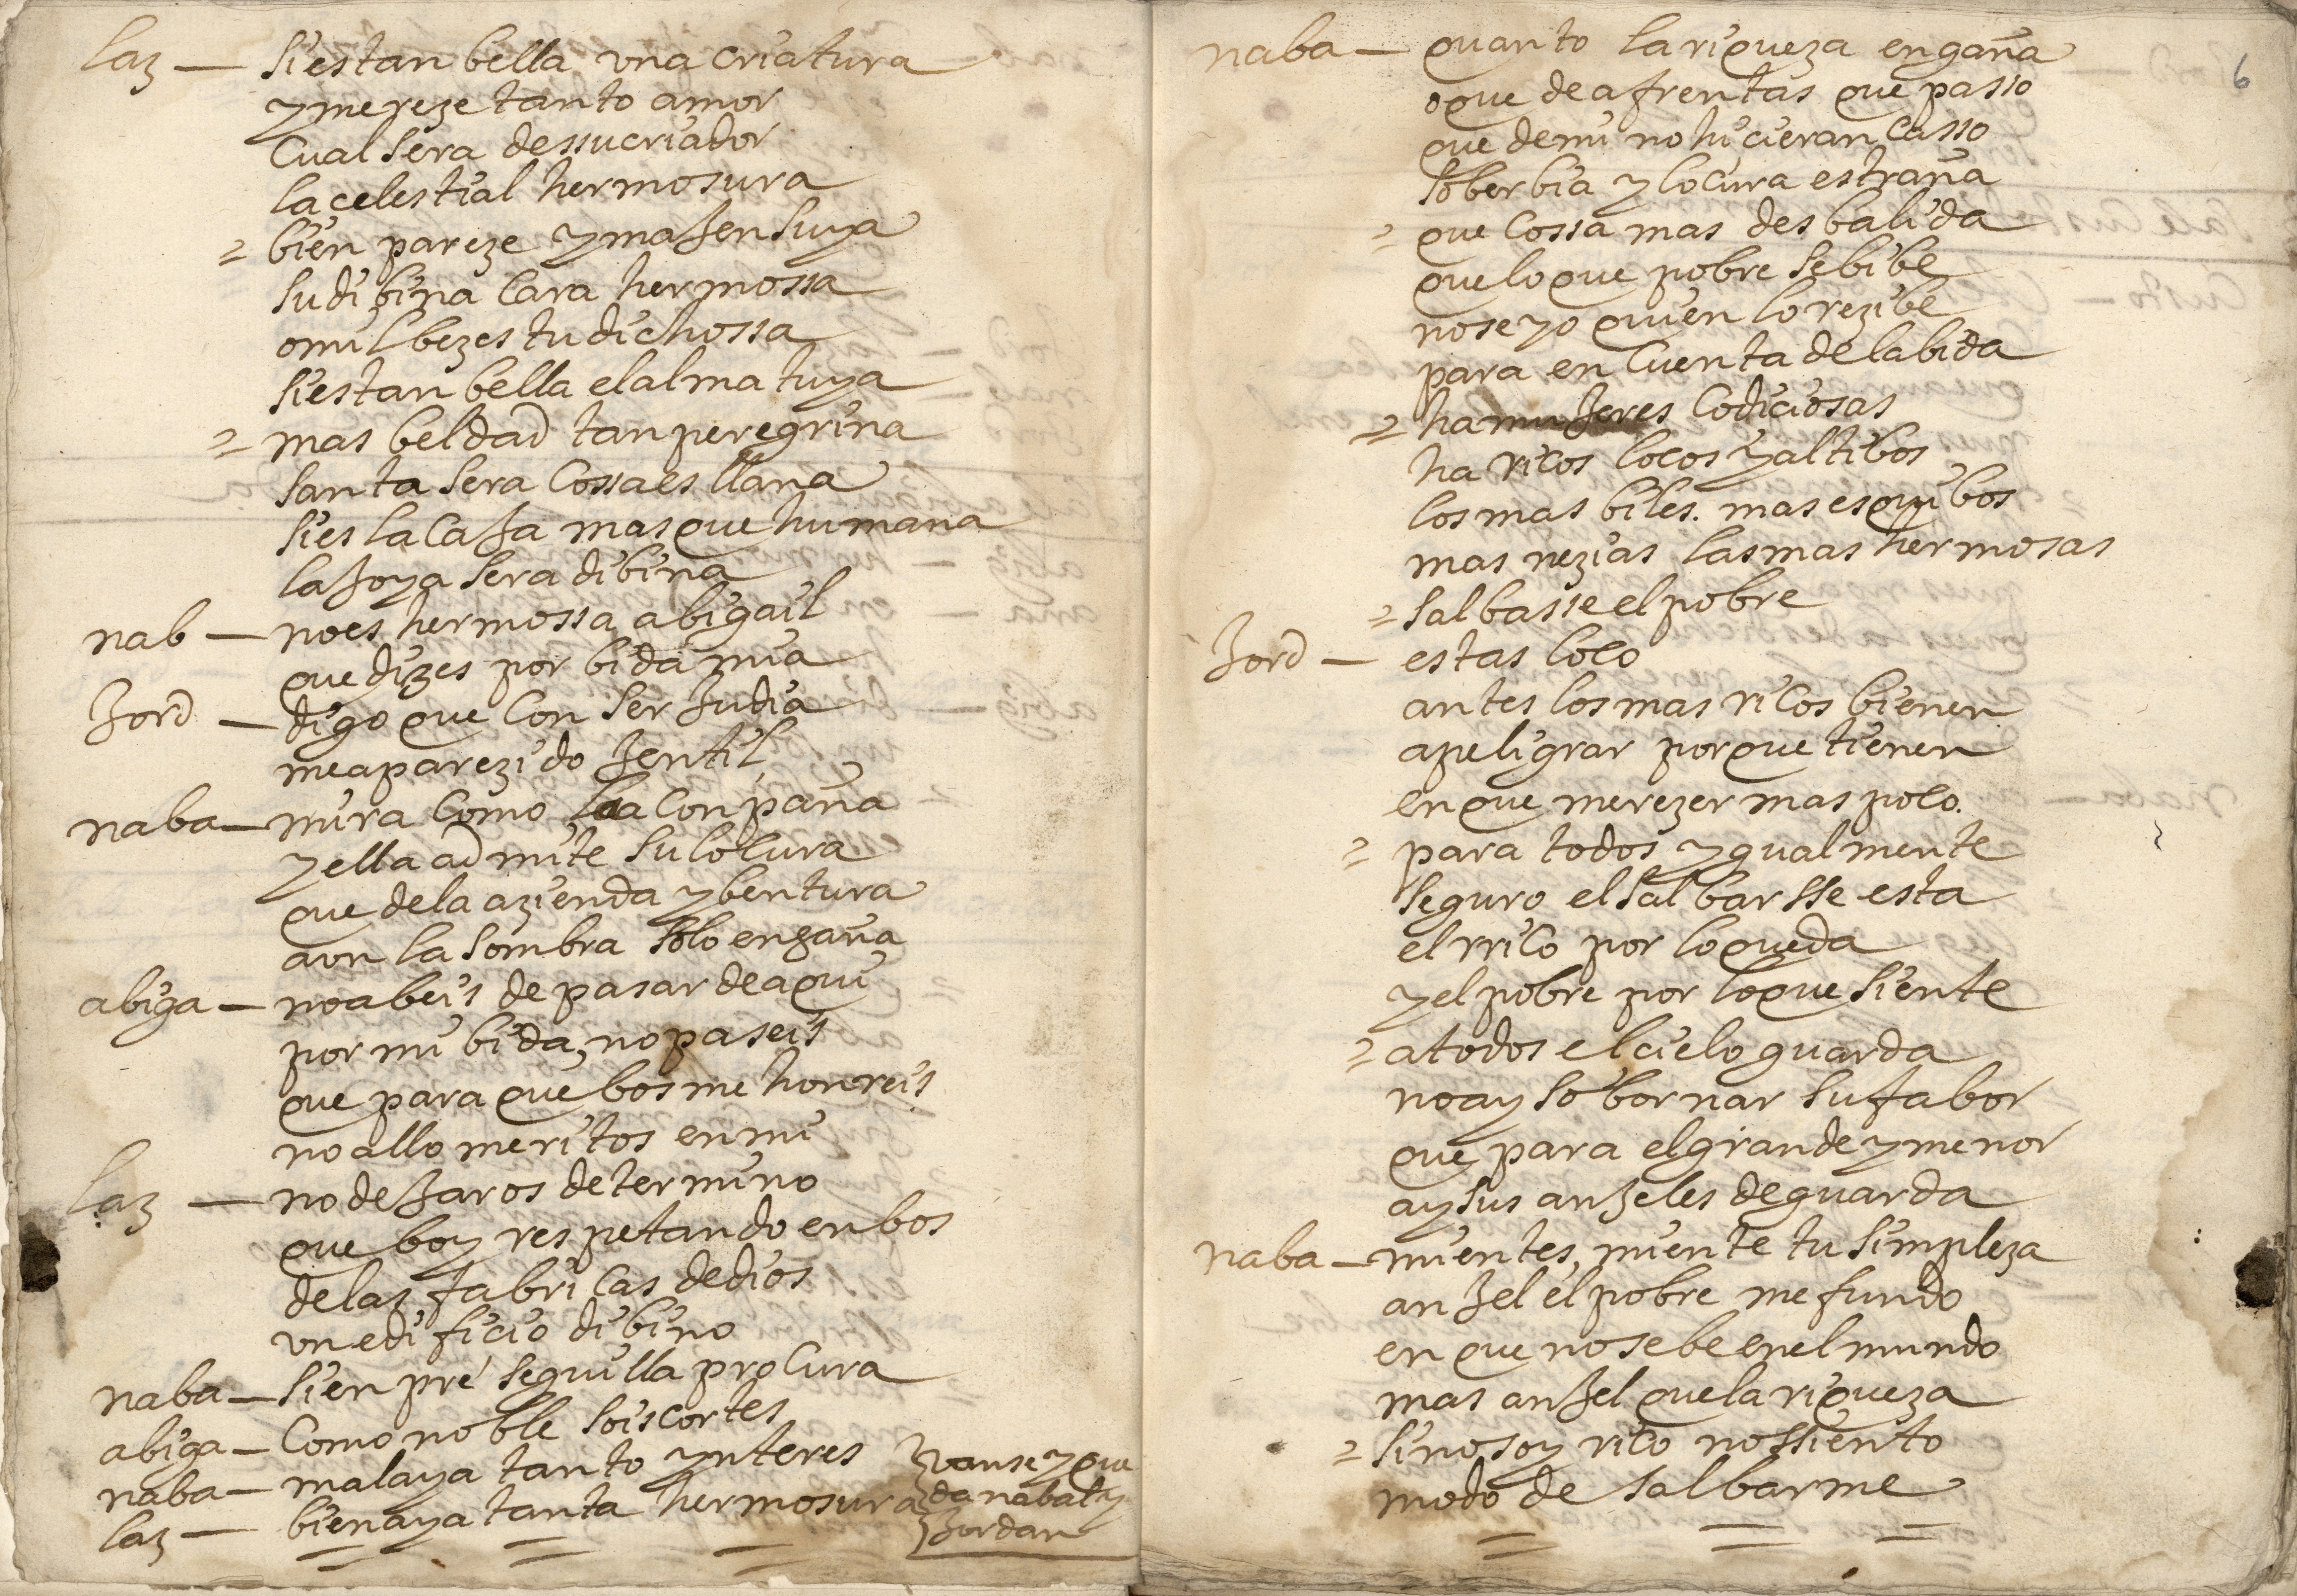 laz — si es tan bella vna criatura
y mereze tanto amor
Cual sera de ssu criador
la celestial hermosura
= bien pareze ymajen suya
su dibina cara hermossa
o mil bezes tu dichossa
si es tan bella el alma tuya
= mas beldad tan peregrina
santa sera cossa es llana
si es la caja mas que humana
la joya sera dibina
nab — no es hermossa abigail
que dizes por bida mia
Jord — digo que con ser Judia
me a parezido jentil
naba — mira como la conpaña
y ella admite su locura
que de la azienda y bentura
aun la sombra solo engaña
abiga — no abeis de pasar de aqui
por mi bida, no paseis
que para que bos me honrreis
no allo meritos en mi
laz — no dejaros determino
que boy respetando en bos
de las fabricas de dios
vn edificio dibino
naba — sienpre seguilla procura
abiga — Como noble sois cortes
naba — mal aya tanto ynteres
laz — bien aya tanta hermosura
vanse y que
da nabal y
Jordan
6
naba — quanto la riqueza engaña
o que de afrentas que passo
que de mi no hicieran casso
soberbia y locura estraña
= que cossa mas desbalida
que lo que pobre se bibe
no se yo quien lo rezibe
para en cuenta de la bida
= ha mujeres codiciosas
ha ricos locos y altibos
los mas biles. mas esquibos
mas nezias las mas hermosas
= salbasse el pobre
Jord — estas loco
antes los mas ricos bienen
a peligrar porque tienen
en que merezer mas poco.
= para todos ygualmente
seguro el salbarsse esta
el rrico por lo que da
y el pobre por lo que siente
= a todos el cielo guarda
no ay sobornar su fabor
que para el grande y menor
ay sus anjeles de guarda
naba — mientes, miente tu simpleza
anjel el pobre me fundo
en que no se be en el mundo
mas anjel que la riqueza
= si no soy rico no ssiento
modo de salbarme